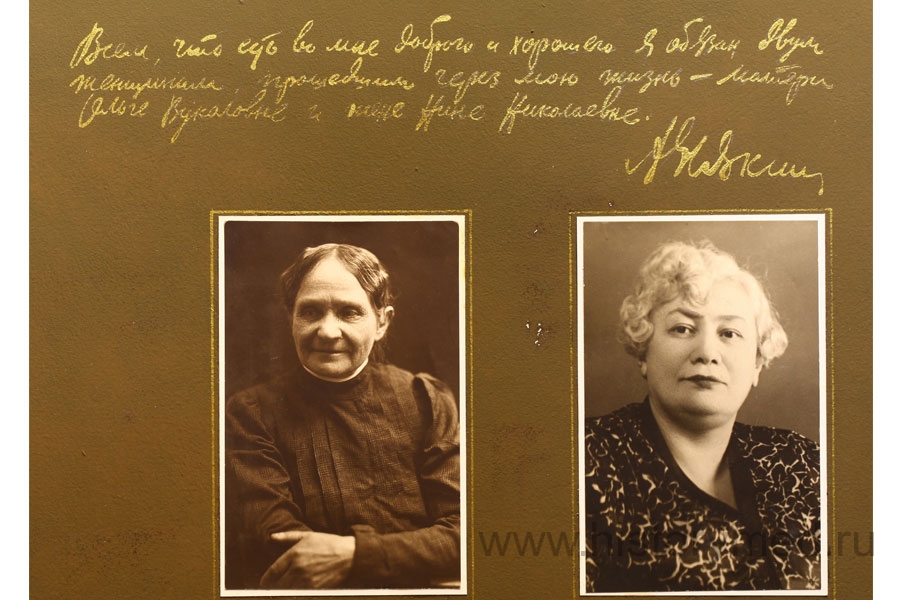 Всем, что есть во мне доброго и хорошего я обязан двум
женщинам, прошедшим через мою жизнь – матери
Ольге Вукаловне и жене Нине Николаевне.
www.historymed.ru